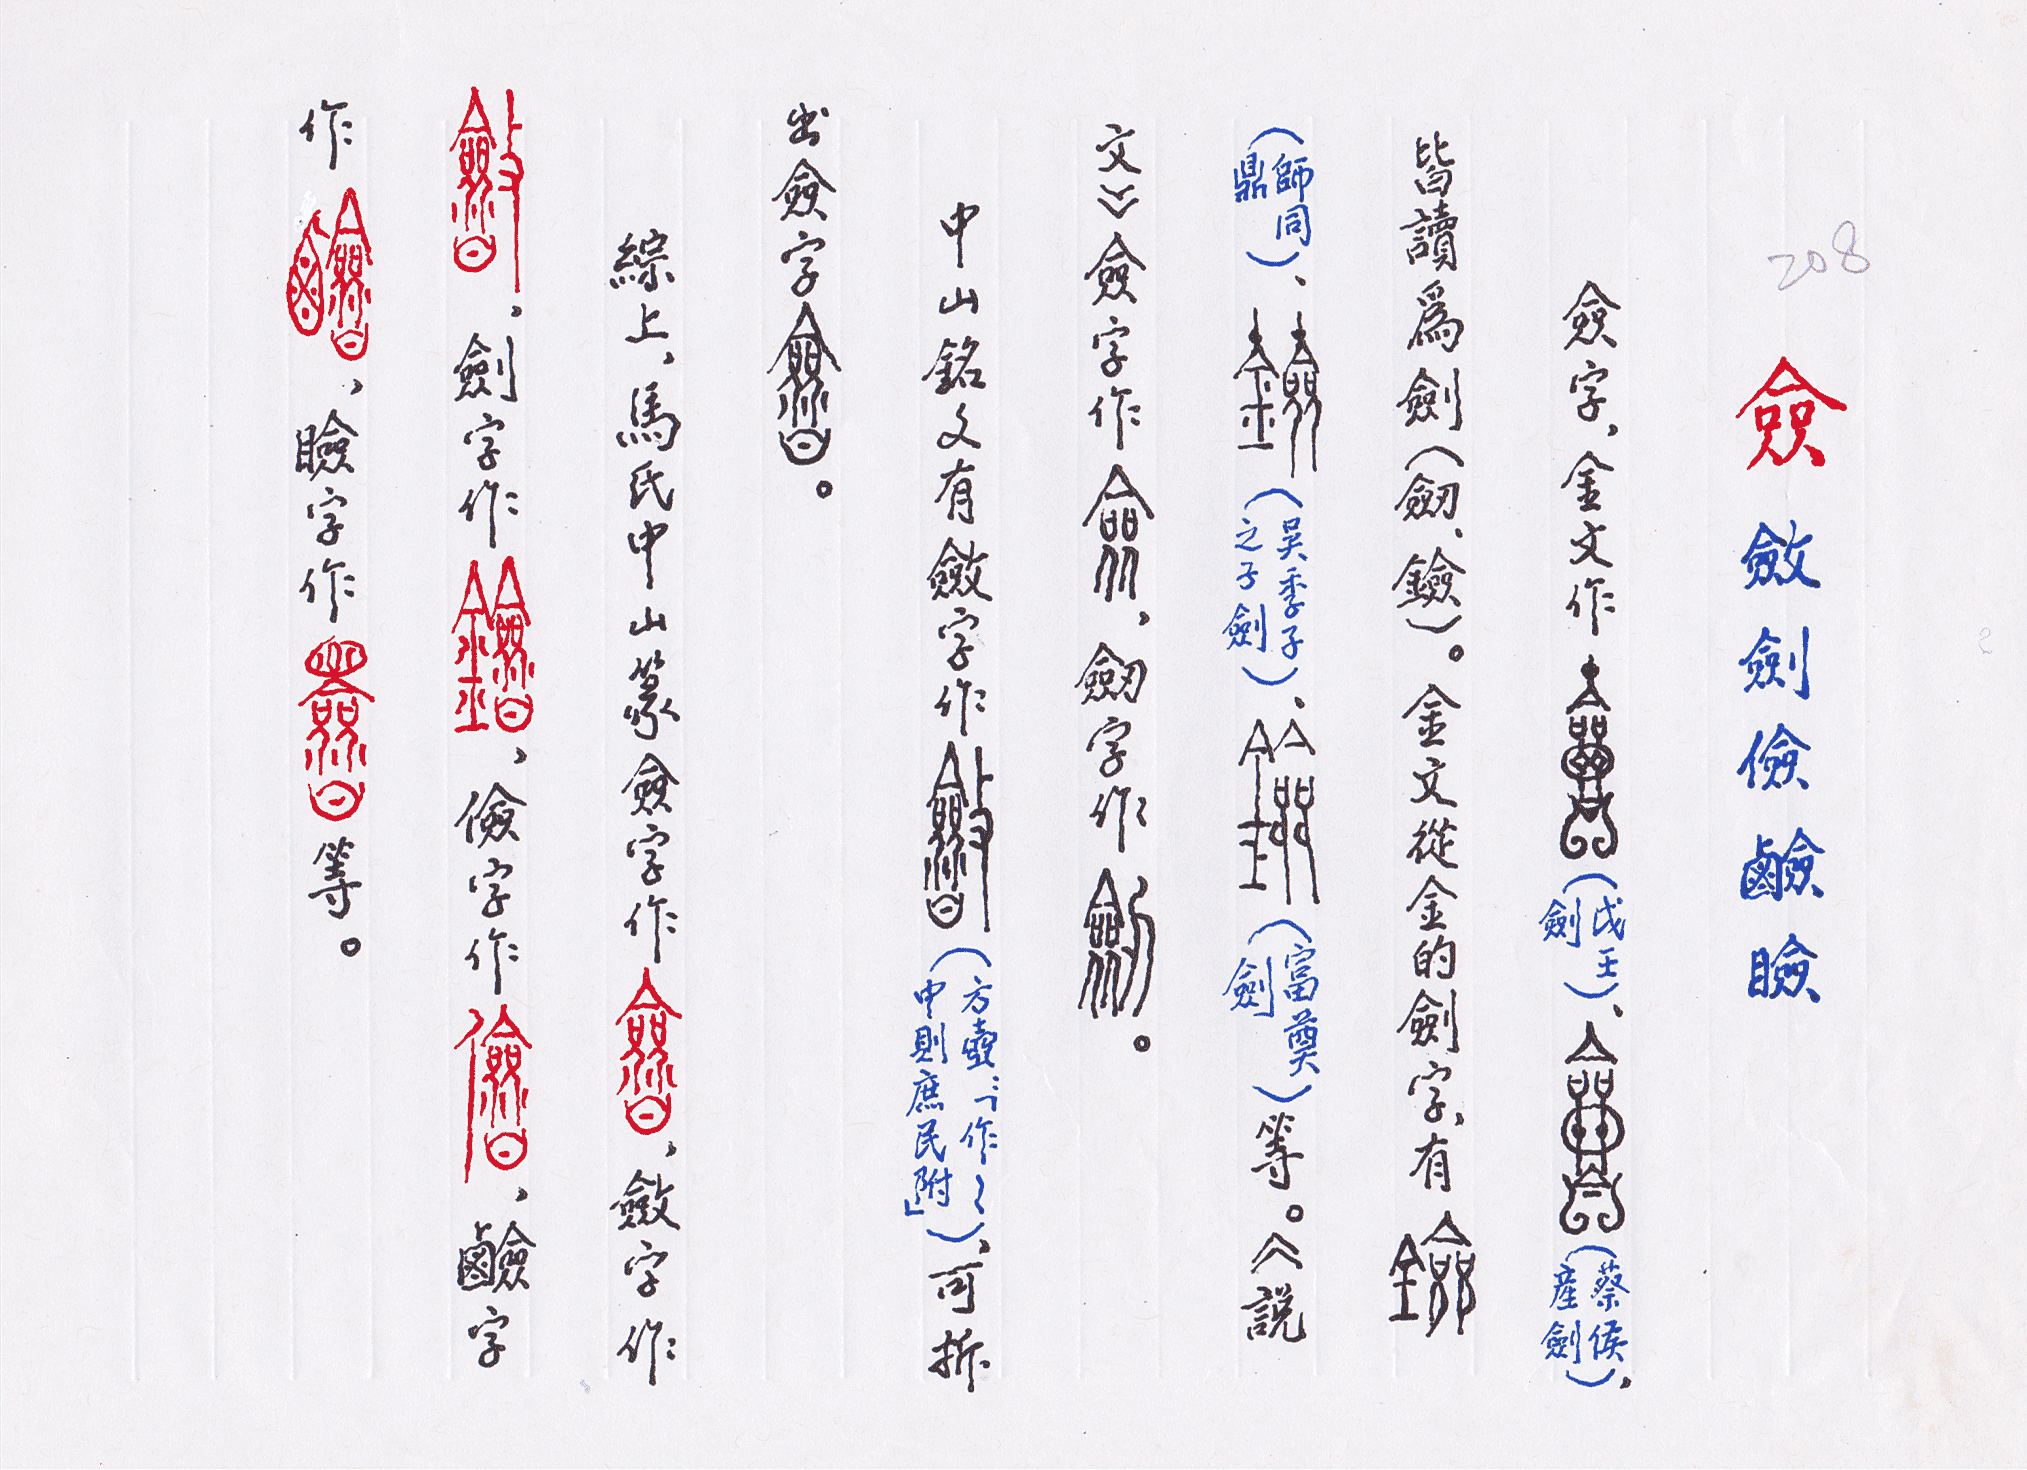 208
僉 斂 劍 儉 鹼 瞼
僉字，金文作（戉王劍）、（蔡侯產劍），
皆讀爲劍（劒、鐱）。金文從金的劍字，有
（師同鼎）、（吴季子之子劍）、（富奠劍）等。《說
文》僉字作，劒字作。
中山銘文有斂字作（方壺：「作斂中則庶民附」），可拆
出僉字。
綜上，馬氏中山篆僉字作，斂字作
，劍字作，儉字作，鹼字
作，瞼字作等。